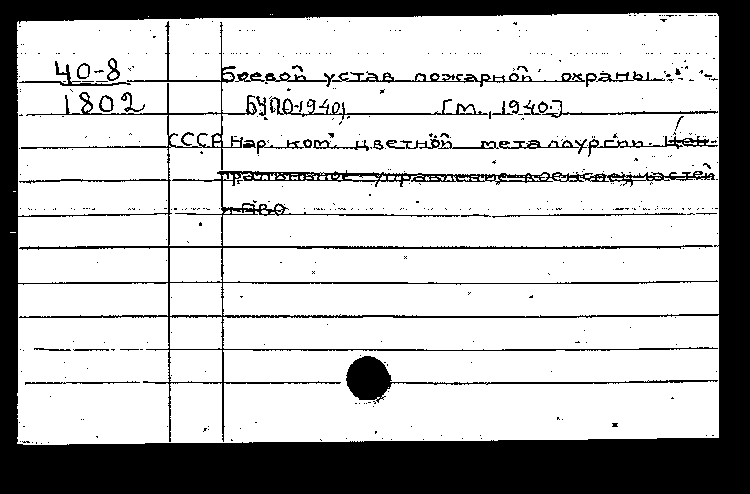 40-8 Боевой устав пожарной охраны.
1802 БУПО-1940. [М., 1940.]
СССР Нар. ком. цветной металлургии. Цен-
тральное управление военспец частей
и ПВО